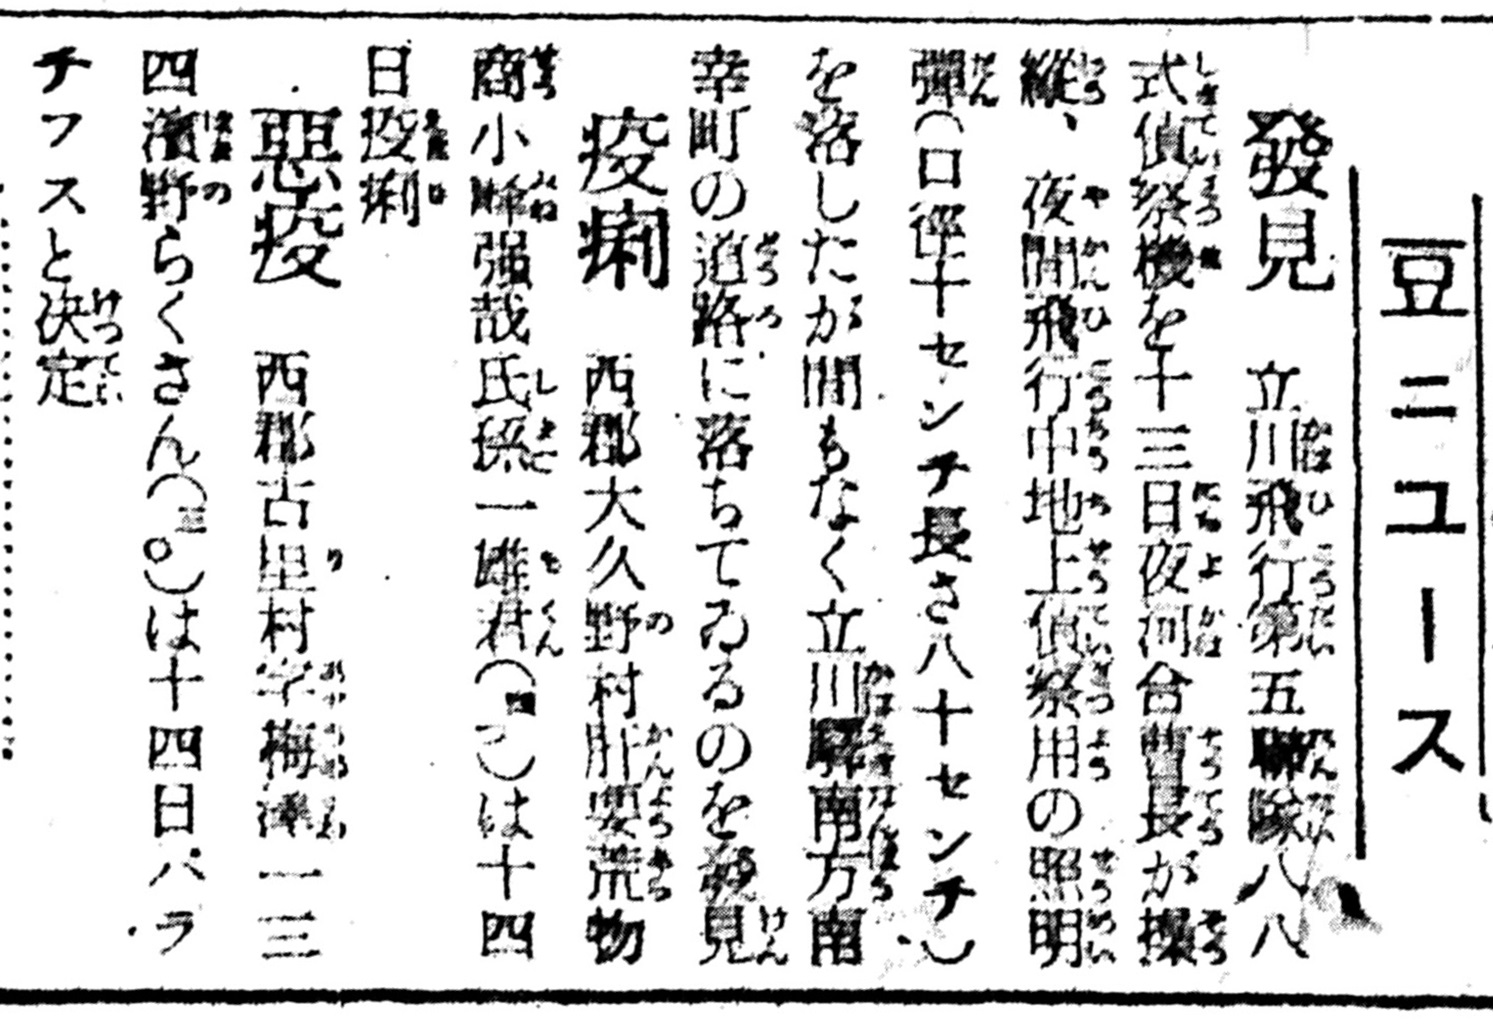 豆ニユース
發見　立川飛行第五聯隊八八
式偵察機を十三日夜河合曹長が操
縱、夜間飛行中地上偵察用の照明
彈(口徑十センチ長さ八十センチ)
を落したが間もなく立川驛南方南
幸町の道路に落ちてゐるのを發見
疫痢　西郡大久野村肝要荒物
商小峰强哉氏孫一雄君(四つ)は十四
日疫痢
惡疫　西郡古里村字梅澤一三
四濱野らくさん(三〇)は十四日パラ
チフスと決定